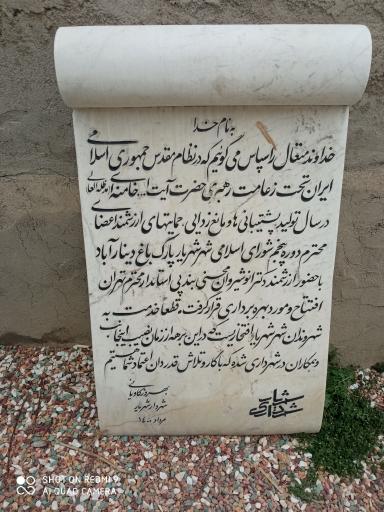 به نام خدا
خداوند متعال را سپاس می گوئیم که در نظام مقدس جمهوری اسلامی
ایران تحت زعامت رهبری حضرت آیت ا... خامنه ای مدظله العالی
در سال تولید پشتیبانی ها و مانع زدایی، حمایتهای ارزشمند اعضای
محترم دوره پنجم شورای اسلامی شهر شهریار پارک باغ دینارآباد
با حضور ارزشمند دکتر انوشیروان محسنی بندپی استاندار محترم تهران
افتتاح و مورد بهره برداری قرار گرفت. قطعاً خدمت به
شهروندان شهر شهریار افتخاریست که در این برهه از زمان نصیب اینجانب
و همکاران در شهرداری شده که با کار و تلاش قدردان اعتماد شما هستیم
بهروز کاویانی
شهردار شهریار
مرداد ۱۴۰۰
شهرداری شهریار
SHOT ON REDMI 9
AI QUAD CAMERA